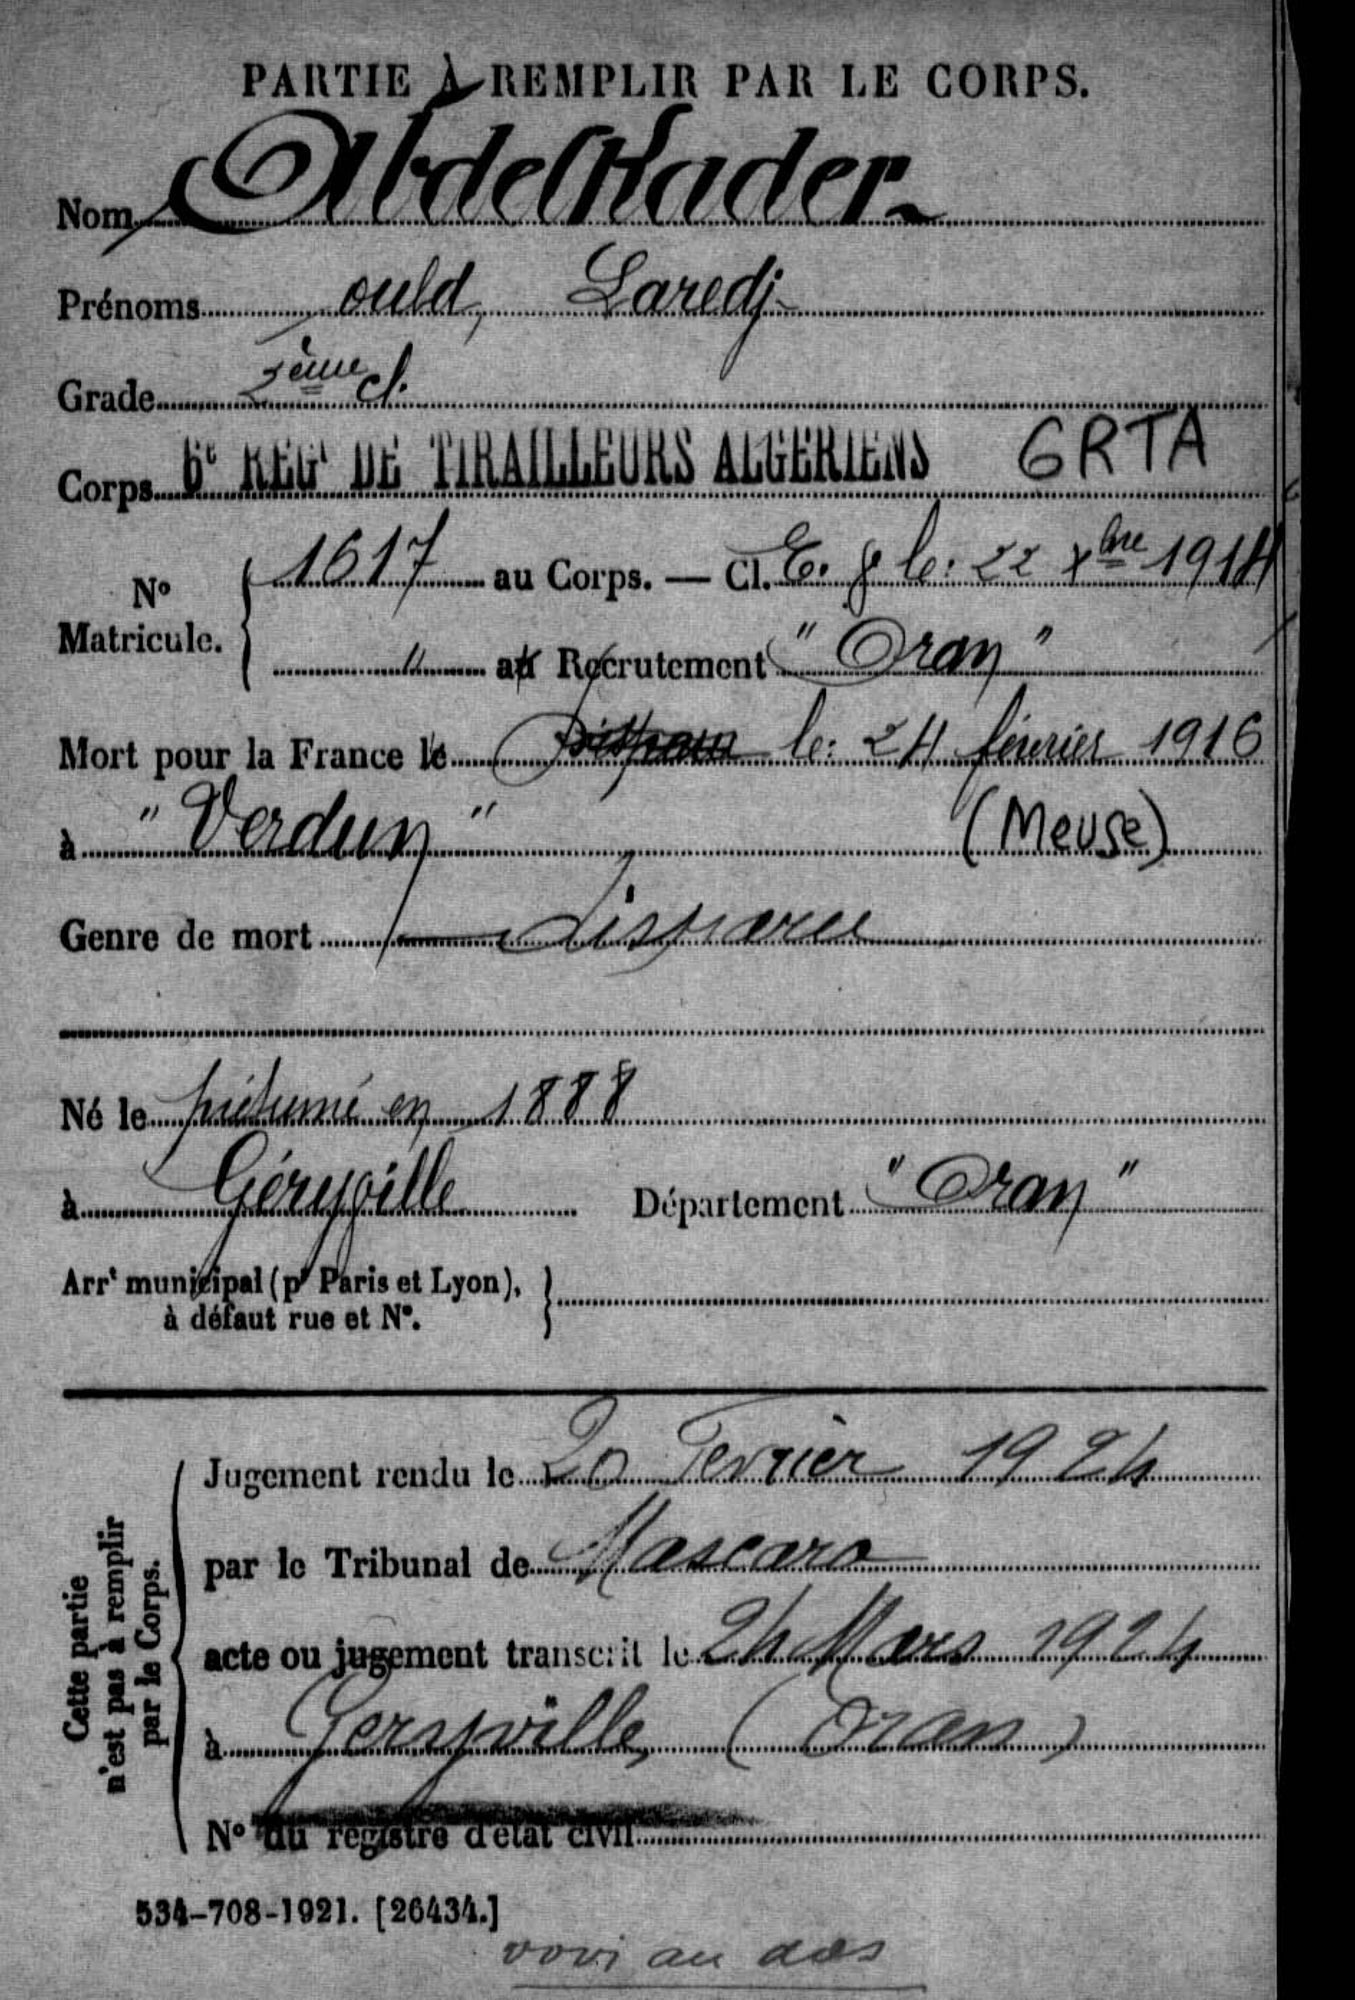 PARTIE À REMPLIR PAR LE CORPS.
Nom AbdelKader
Prénoms ould, Laredj
Grade 2ème cl.
Corps 6e REGt DE TIRAILLEURS ALGERIENS 6RTA
No Matricule. { 1617 au Corps. — Cl. E. g le: 22 Xbre 1914
" au Recrutement "Oran"
Mort pour la France le Disparu le: 24 février 1916
à "Verdun" (Meuse)
Genre de mort Disparu
Né le présumé en 1888
à Géryville Département "Oran"
Arrt municipal (pr Paris et Lyon), à défaut rue et N°. }
Cette partie n'est pas à remplir par le Corps.
Jugement rendu le 20 Fevrièr 1924
par le Tribunal de Mascara
acte ou jugement transcrit le 24 Mars 1924
à Geryville, (Oran)
N° du registre d'état civil
534-708-1921. [26434.]
voir au dos